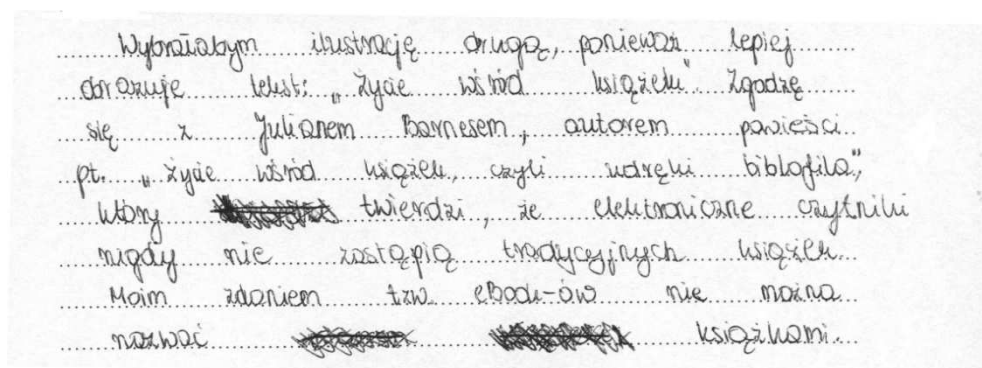 Wybrałabym ilustrację drugą, ponieważ lepiej
obrazuje tekst: „Życie wśród książek". Zgodzę
się z Julianem Barnesem, autorem powieści
pt. „Życie wśród książek, czyli udręki bibliofila",
który twierdzi, że elektroniczne czytniki
nigdy nie zastąpią tradycyjnych książek.
Moim zdaniem tzw eBook-ów nie można
nazwać książkami.